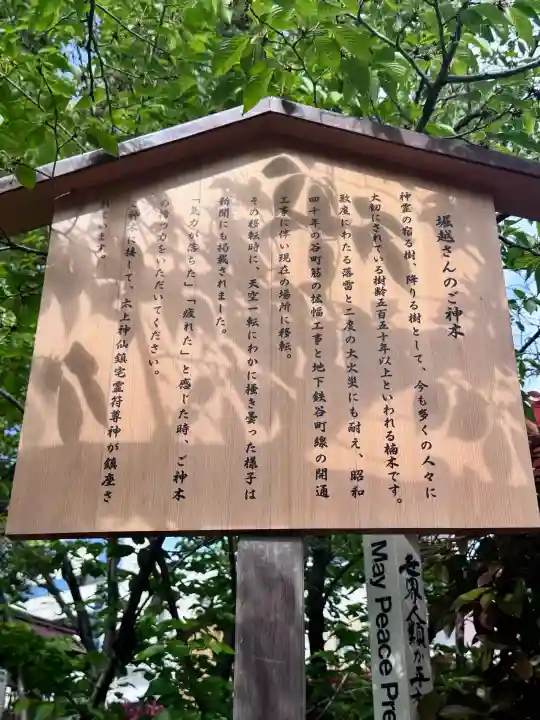 堀越さんのご神木
神霊の宿る樹、降りる樹として、今も多くの人々に
大切にされている樹齢五百五十年以上といわれる楠木です。
数度にわたる落雷と二度の大火災にも耐え、昭和
四十年の谷町筋の拡幅工事と地下鉄谷町線の開通
工事に伴い現在の場所に移転。
その移転時に、天空一転にわかに掻き曇った様子は
新聞にも掲載されました。
「気力が落ちた」「疲れた」と感じた時、ご神木
の持つ力をいただいてください。
ご神木に接して、太上神仙鎮宅霊符尊神が鎮座さ
れています。
世界人類が平
May Peace Pre